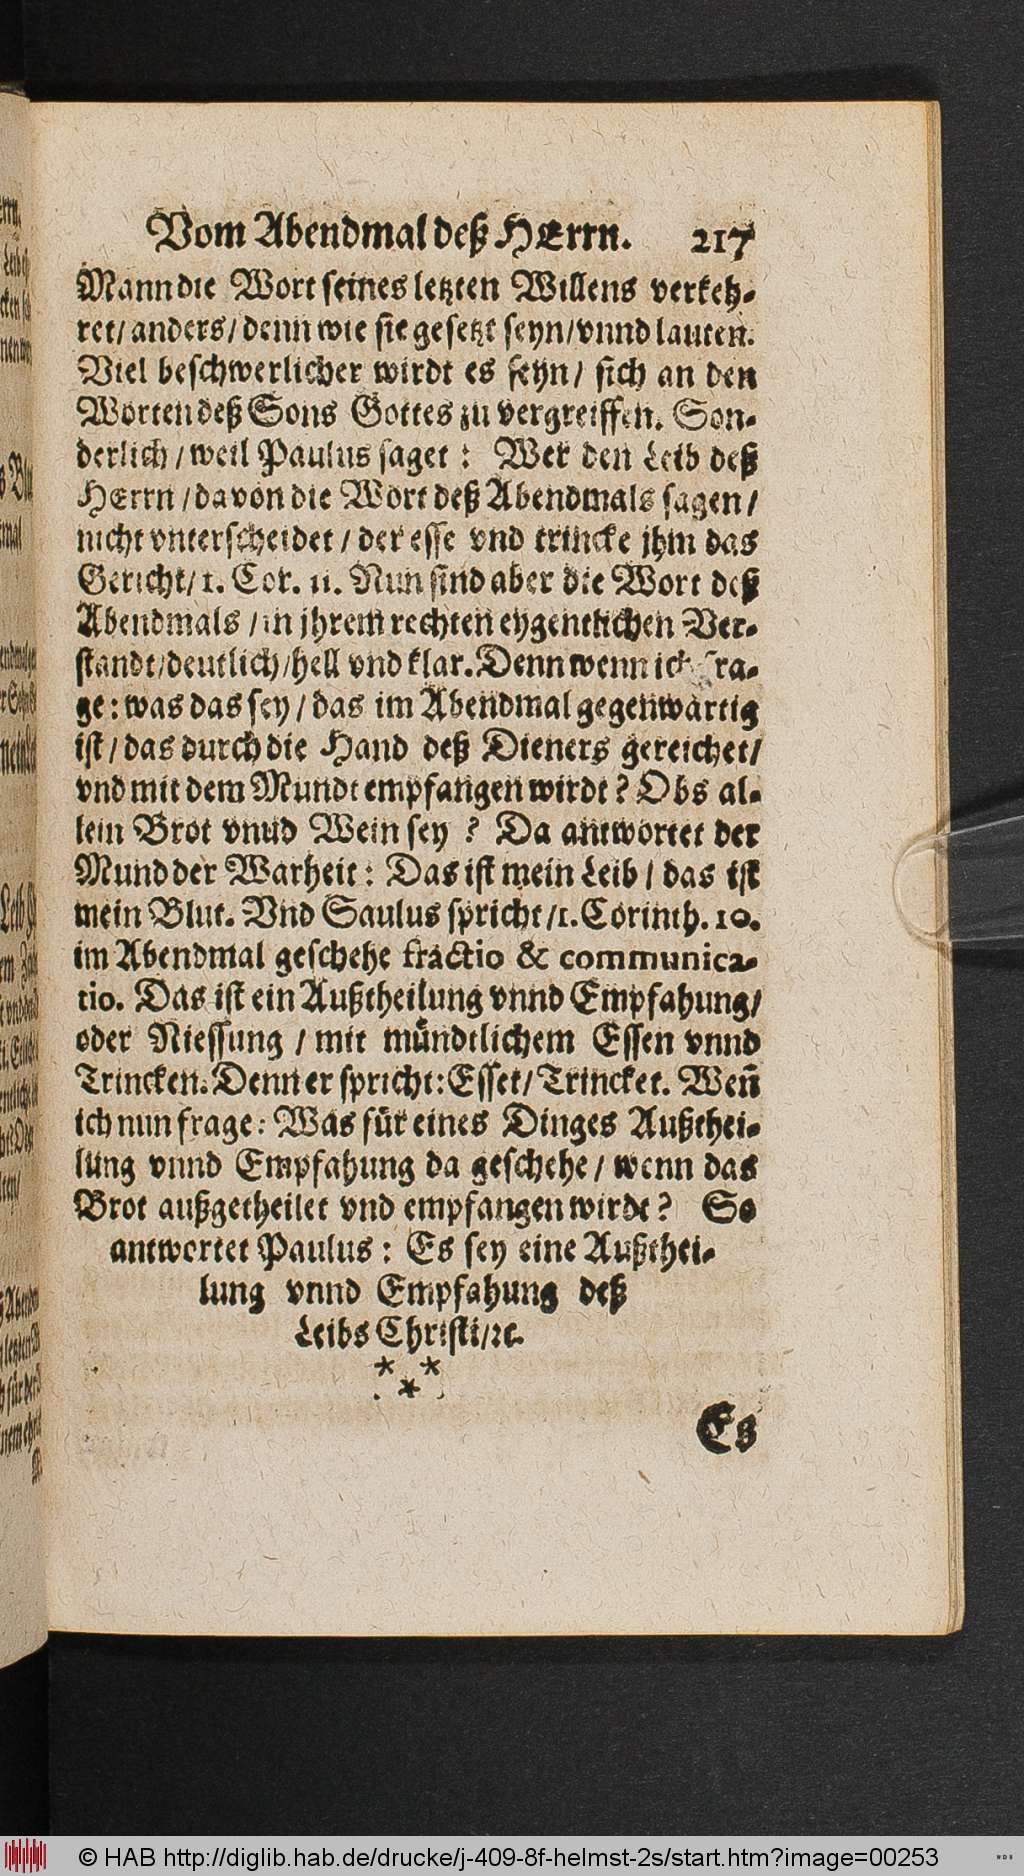 Vom Abendmal deß HErrn. 217
Mann die Wort seines letzten Willens verkeh-
ret/ anders/ denn wie sie gesetzt seyn/ vnnd lauten.
Viel beschwerlicher wirdt es seyn/ sich an den
Worten deß Sons Gottes zu vergreiffen. Son-
derlich/ weil Paulus saget: Wer den Leib deß
HErrn/ davon die Wort deß Abendmals sagen/
nicht vnterscheidet/ der esse vnd trincke jhm das
Gericht/ 1. Cor. 11. Nun sind aber die Wort deß
Abendmals/ in jhrem rechten eygentlichen Ver-
standt/ deutlich/ hell vnd klar. Denn wenn ich fra-
ge: was das sey/ das im Abendmal gegenwärtig
ist/ das durch die Hand deß Dieners gereichet/
vnd mit dem Mundt empfangen wirdt? Obs al-
lein Brot vnnd Wein sey? Da antwortet der
Mund der Warheit: Das ist mein Leib/ das ist
mein Blut. Vnd Saulus spricht/ 1. Corinth. 10.
im Abendmal geschehe fractio & communica-
tio. Das ist ein Außtheilung vnnd Empfahung/
oder Niessung/ mit mündtlichem Essen vnnd
Trincken. Denn er spricht: Esset/ Trincket. Weñ
ich nun frage: Was für eines Dinges Außthei-
lung vnnd Empfahung da geschehe/ wenn das
Brot außgetheilet vnd empfangen wirdt? So
antwortet Paulus: Es sey eine Außthei-
lung vnnd Empfahung deß
Leibs Christi/ ꝛc.
* * *
Es
© HAB http://diglib.hab.de/drucke/j-409-8f-helmst-2s/start.htm?image=00253